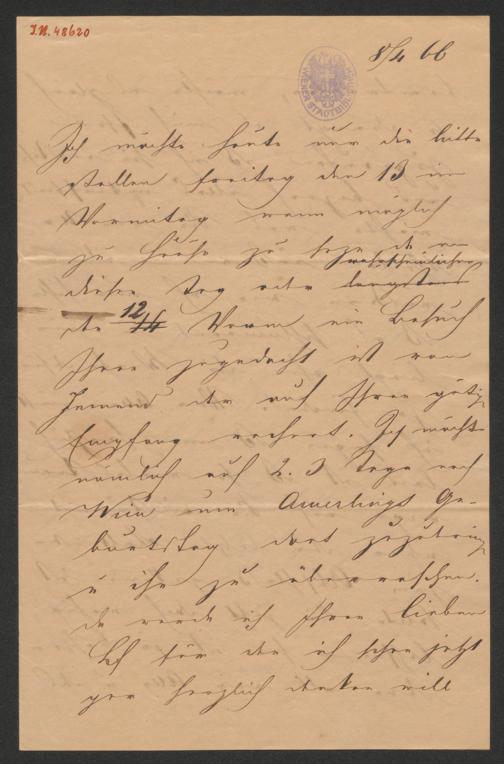 I.N. 48620
8/4 66
WIENER STADTBIBL
Ich möchte heute nur die bitte
stellen Freitag den 13 im
Vormitag wenn möglich
zu Hause zu sein da an
wahrscheinlicher
diesen Tag oder längstens
den 12 14 Vorm ein Besuch
Ihnen zugedacht ist von
Jemand der auf Ihren gütig
Empfang rechnet. Ich möchte
nämlich auf 2. 3 Tage nach
Wien um Amerlings Ge-
burtstag dort zuzubringen
u ihn zu überraschen.
da werde ich Ihren lieben
Bf für den ich schon jetzt
gar herzlich danken will